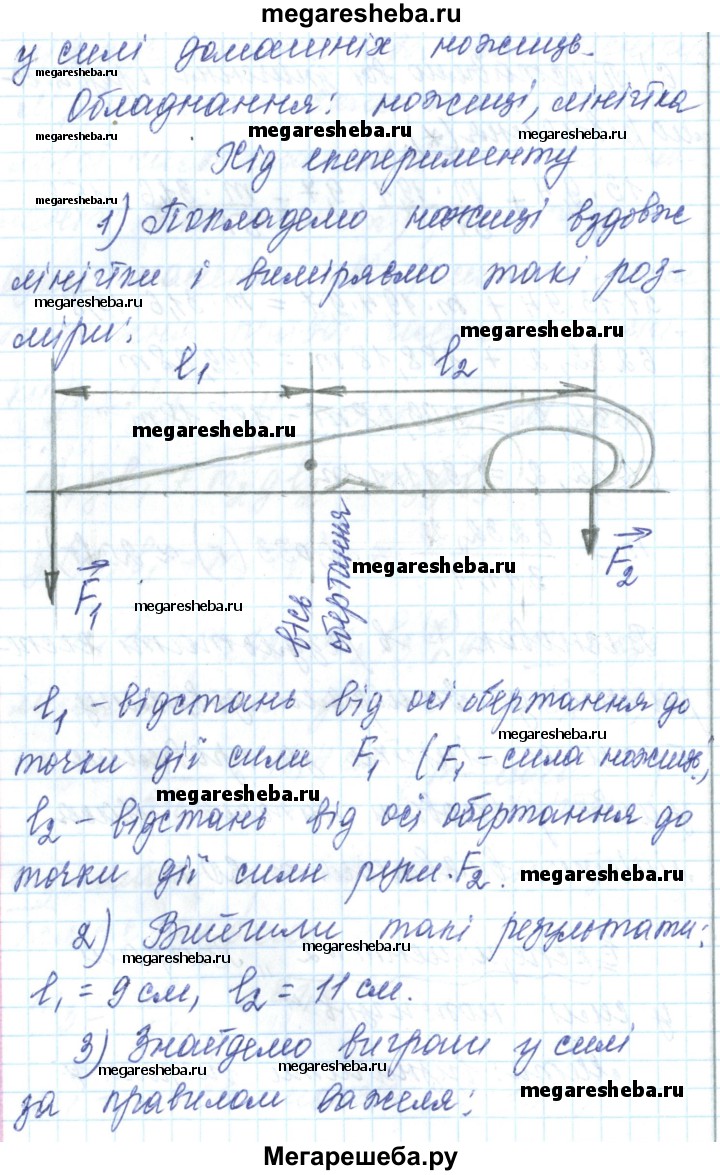 megaresheba.ru
у силі домашніх ножиць.
megaresheba.ru
Обладнання: ножиці, лінійка
megaresheba.ru
megaresheba.ru
megaresheba.ru
Хід експерименту
megaresheba.ru
1) Покладемо ножиці вздовж
лінійки і виміряємо такі роз-
megaresheba.ru
міри:
megaresheba.ru
l₁ l₂
megaresheba.ru
F₁ F₂
вісь обертання
megaresheba.ru
megaresheba.ru
l₁ – відстань від осі обертання до
megaresheba.ru
точки дії сили F₁ (F₁ – сила ножиць)
megaresheba.ru
l₂ – відстань від осі обертання до
точки дії сили руки F₂.
megaresheba.ru
2) такі результати:
megaresheba.ru
megaresheba.ru
l₁ = 9 см, l₂ = 11 см.
3) Знайдемо виграш у силі
megaresheba.ru
megaresheba.ru
megaresheba.ru
за правилом важеля:
Мегарешеба.ру